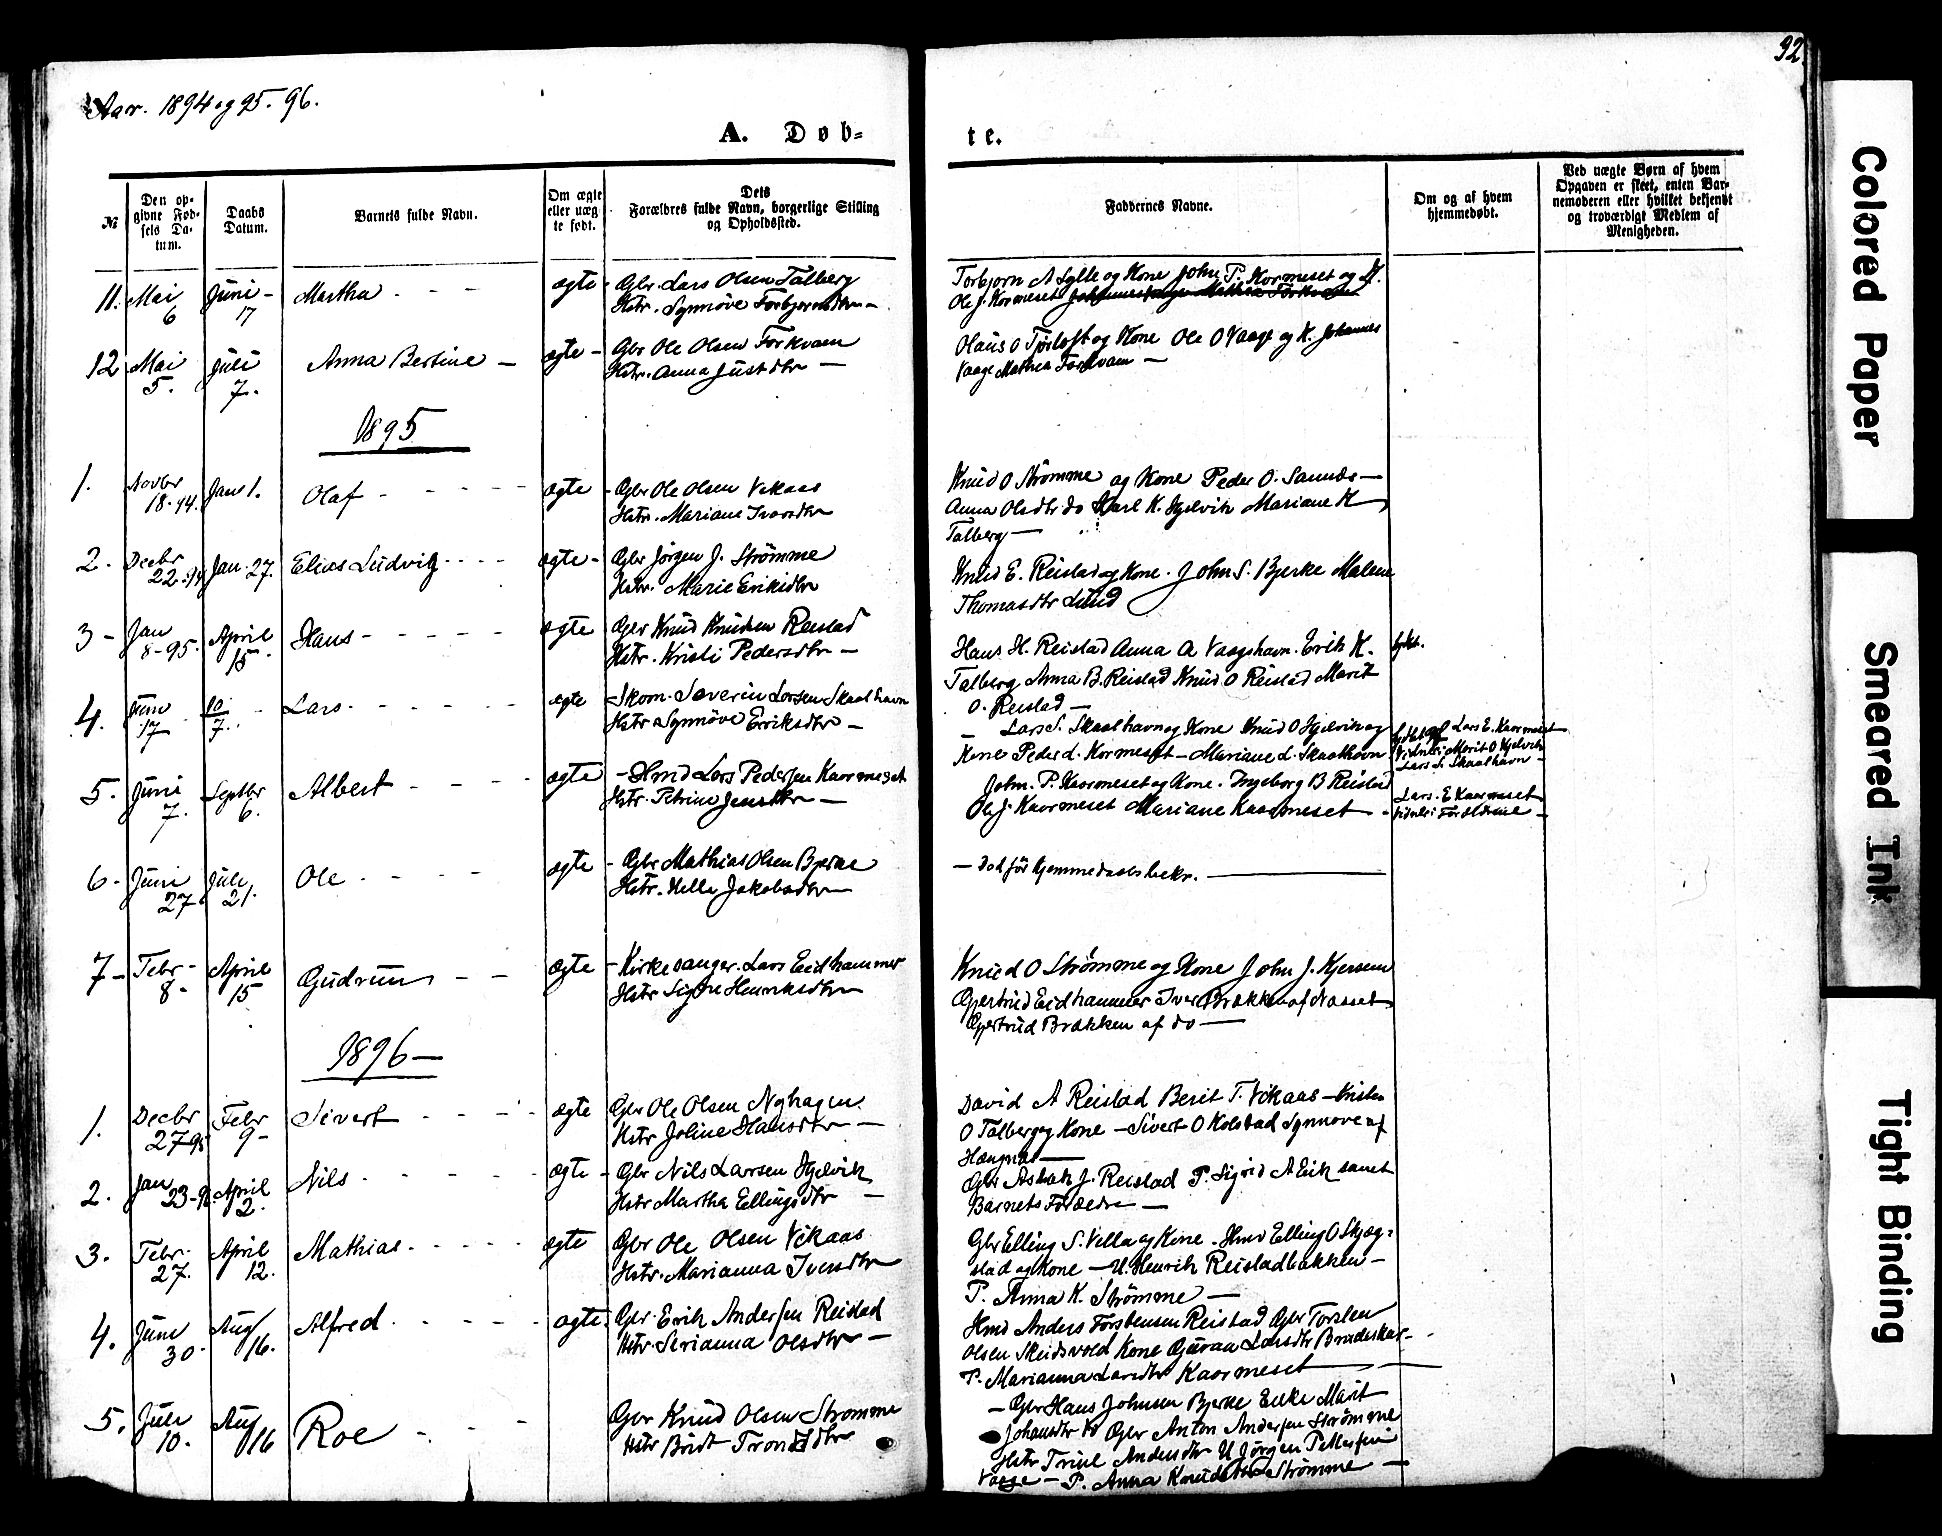 Aar. 1894 og 95. 96.
32
A. Døb=
te.
№
Den op=
givne Fød=
sels Da=
tum.
Daabs
Datum.
Barnets fulde Navn.
Om ægte
eller uæg
te født.
Dets
Forældres fulde Navn, borgerlige Stilling
og Opholdssted.
Faddernes Navne.
Om og af hvem
hjemmedøbt.
Ved uægte Børn af hvem
Opgaven er skeet, enten Bar=
nemoderen eller hvilket bekjendt
og troværdigt Medlem af
Menigheden.
11. Mai 6 Juni 17 Martha ægte Gbr. Lars Olsen Talberg
Hstr. Synnøve Torbjørnsdtr
Torbjørn A Sylte og Kone John P. Kormeset og K.
Ole J. Kormeset
12 Mai 5. Juli 7. Anna Bertine ægte Gbr Ole Olsen Torkvam
Hstr. Anna Justdtr
Olaus O Tørloft og Kone Ole O Vaage og K. Johannes
Vaage Mathea Torkvam
1895
1. Novbr 18-94. Jan 1. Olaf ægte Gbr Ole Olsen Vikaas
Hstr. Mariane Iversdtr
Knud O Strømme og Kone Peder O. Sannds
Anna Olsdtr do Karl K. Hjelvik Mariane K
Talberg
2. Decbr 22-94 Jan. 27. Elias Ludvig ægte Gbr Jørgen J. Strømme
Hstr. Marie Eriksdtr
Knud E. Reistad og Kone. John S. Bjerke Malene
Thomasdtr Lund
3 Jan 8-95. April 15 Hans ægte Gbr Knud Knudsen Reistad
Hstr. Kristi Pedersdtr
Hans H. Reistad Anna A Vaagshavn. Erik K.
Talberg Anna B. Reistad Knud O Reistad Marit
O. Reistad
4. Juni 17 10/7. Lars ægte Skom. Severin Larsen Skaalhavn
Hstr Synnøve Eriksdtr
Lars S. Skaalhavn og Kone Knud O Hjelvik og
Kone Peder L. Kormeset Mariane L Skaalhavn
Lars E. Kaormeset
Vidner: Marit O Hjelvik
Lars S. Skaalhavn
5. Juni 7. Septbr 6. Albert ægte Hmd Lars Pedersen Kaormeset
Hstr. Petrine Jensdtr
John. P. Kaormeset og Kone. Ingeborg B Reistad
Ole J. Kaormeset Mariane Kaarmeset
Lars. E Kaormeset
vidner: Forældrene
6. Juni 27 Juli 21. Ole ægte Gbr Mathias Olsen Bjerke
Hstr. Helle Jakobsdtr
død før Hjemmedaabs bekr.
7 Febr 8 April 15 Gudrun ægte Kirkesanger. Lars Eidhammer
Hstr Signe Henriksdtr
Knud O Strømme og Kone John J. Kjersem
Gjertrud Eidhammer Iver Brækken af Næsset
Gjertrud Brækken af do
1896
1. Decbr 27 95 Febr 9 Sivert ægte Gbr Ole Olsen Nyhagen
Hstr Joline Hansdtr
David A Reistad Berit T. Vikaas
O Talberg og Kone Sivert O Kolstad Synnøve af
2. Jan 23-96. April 2. Nils ægte Gbr Nils Larsen Hjelvik
Hstr Martha Ellingsdtr
Gbr Aslak J. Reistad P. Sigrid A Eik samt
Barnets Forældre
3. Febr. 27. April 12. Mathias ægte Gbr Ole Olsen Vikaas
Hstr. Marianna Iversdtr
Gbr Elling S. Villa og Kone. Hmd Elling O Skjeg=
stad og Kone U. Henrik Reistadbakken
P. Anna K. Strømme
4. Juni 30 Aug 16. Alfred ægte. Gbr. Erik Andersen Reistad
Hstr Serianna Olsdtr
Hmd Anders Torstensen Reistad Gbr Torsten
Olsen Skeidsvold Kone Guraa Larsdtr
P. Marianna Larsdtr Kaormeset
5. Juli 10. Aug 16 Roe Gbr Knud Olsen Strømme
Hstr Brit Trondsdtr
Gbr Hans Johnsen Bjerke Enke Marit
Johansdtr do Gbr Anton Andersen Strømme
Hstr Trine Andersdtr U. Jørgen Pettersen
Vaage P. Anna Knudsdtr Strømme
Colored Paper
Smeared Ink
Tight Binding